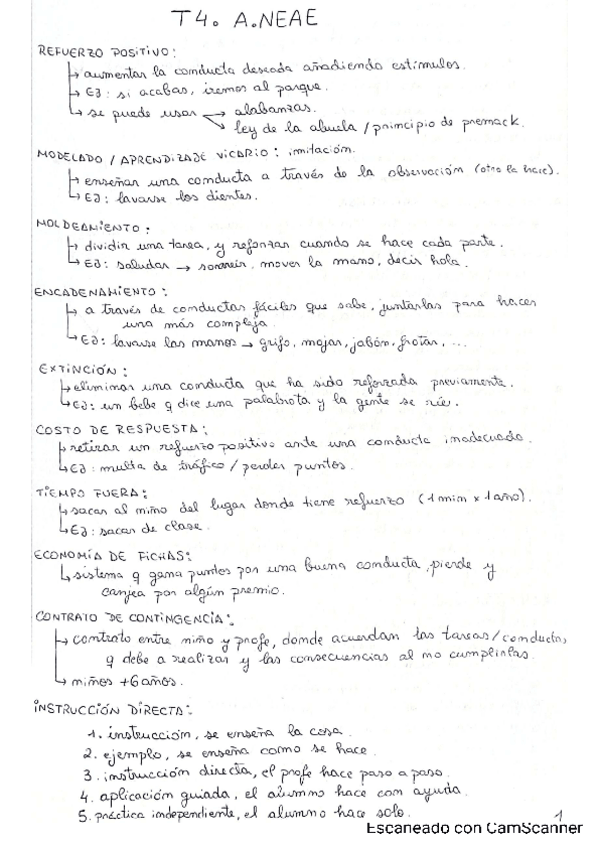 T4. A.NEAE
REFUERZO POSITIVO:
↳ aumentar la conducta deseada añadiendo estímulos.
↳ EJ: si acabas, iremos al parque.
↳ se puede usar → alabanzas.
↘ ley de la abuela / principio de premack.
MODELADO / APRENDIZAJE VICARIO: imitación.
↳ enseñar una conducta a través de la observación (otro la hace).
↳ EJ: lavarse los dientes.
MOLDEAMIENTO:
↳ dividir una tarea, y reforzar cuando se hace cada parte.
↳ EJ: saludar → sonreír, mover la mano, decir hola.
ENCADENAMIENTO:
↳ a través de conductas fáciles que sabe, juntarlas para hacer
una más compleja
↳ EJ: lavarse las manos → grifo, mojar, jabón, frotar, ...
EXTINCIÓN:
↳ eliminar una conducta que ha sido reforzada previamente.
↳ EJ: un bebe q dice una palabrota y la gente se ríe.
COSTO DE RESPUESTA:
↳ retirar un refuerzo positivo ante una conducta inadecuada.
↳ EJ: multa de tráfico / perder puntos.
TIEMPO FUERA:
↳ sacar al niño del lugar donde tiene refuerzo (1 min x 1 año).
↳ EJ: sacar de clase.
ECONOMÍA DE FICHAS:
↳ sistema q gana puntos por una buena conducta, pierde y
canjea por algún premio.
CONTRATO DE CONTINGENCIA:
↳ contrato entre niño y profe, donde acuerdan las tareas/conductas
q debe a realizar y las consecuencias al no cumplirlas.
↳ niños +6 años.
INSTRUCCIÓN DIRECTA:
1. instrucción, se enseña la cosa.
2. ejemplo, se enseña como se hace.
3. instrucción directa, el profe hace paso a paso.
4. aplicación guiada, el alumno hace con ayuda.
5. práctica independiente, el alumno hace solo.
1
Escaneado con CamScanner